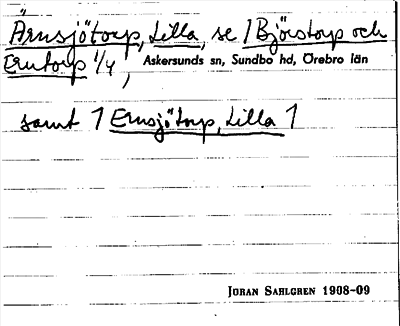 Ärnsjötorp, Lilla, se 1 Björstorp och
Erntorp 1/4, Askersunds sn, Sundbo hd, Örebro län
samt 1 Ernsjötorp, Lilla 1
JÖRAN SAHLGREN 1908-09